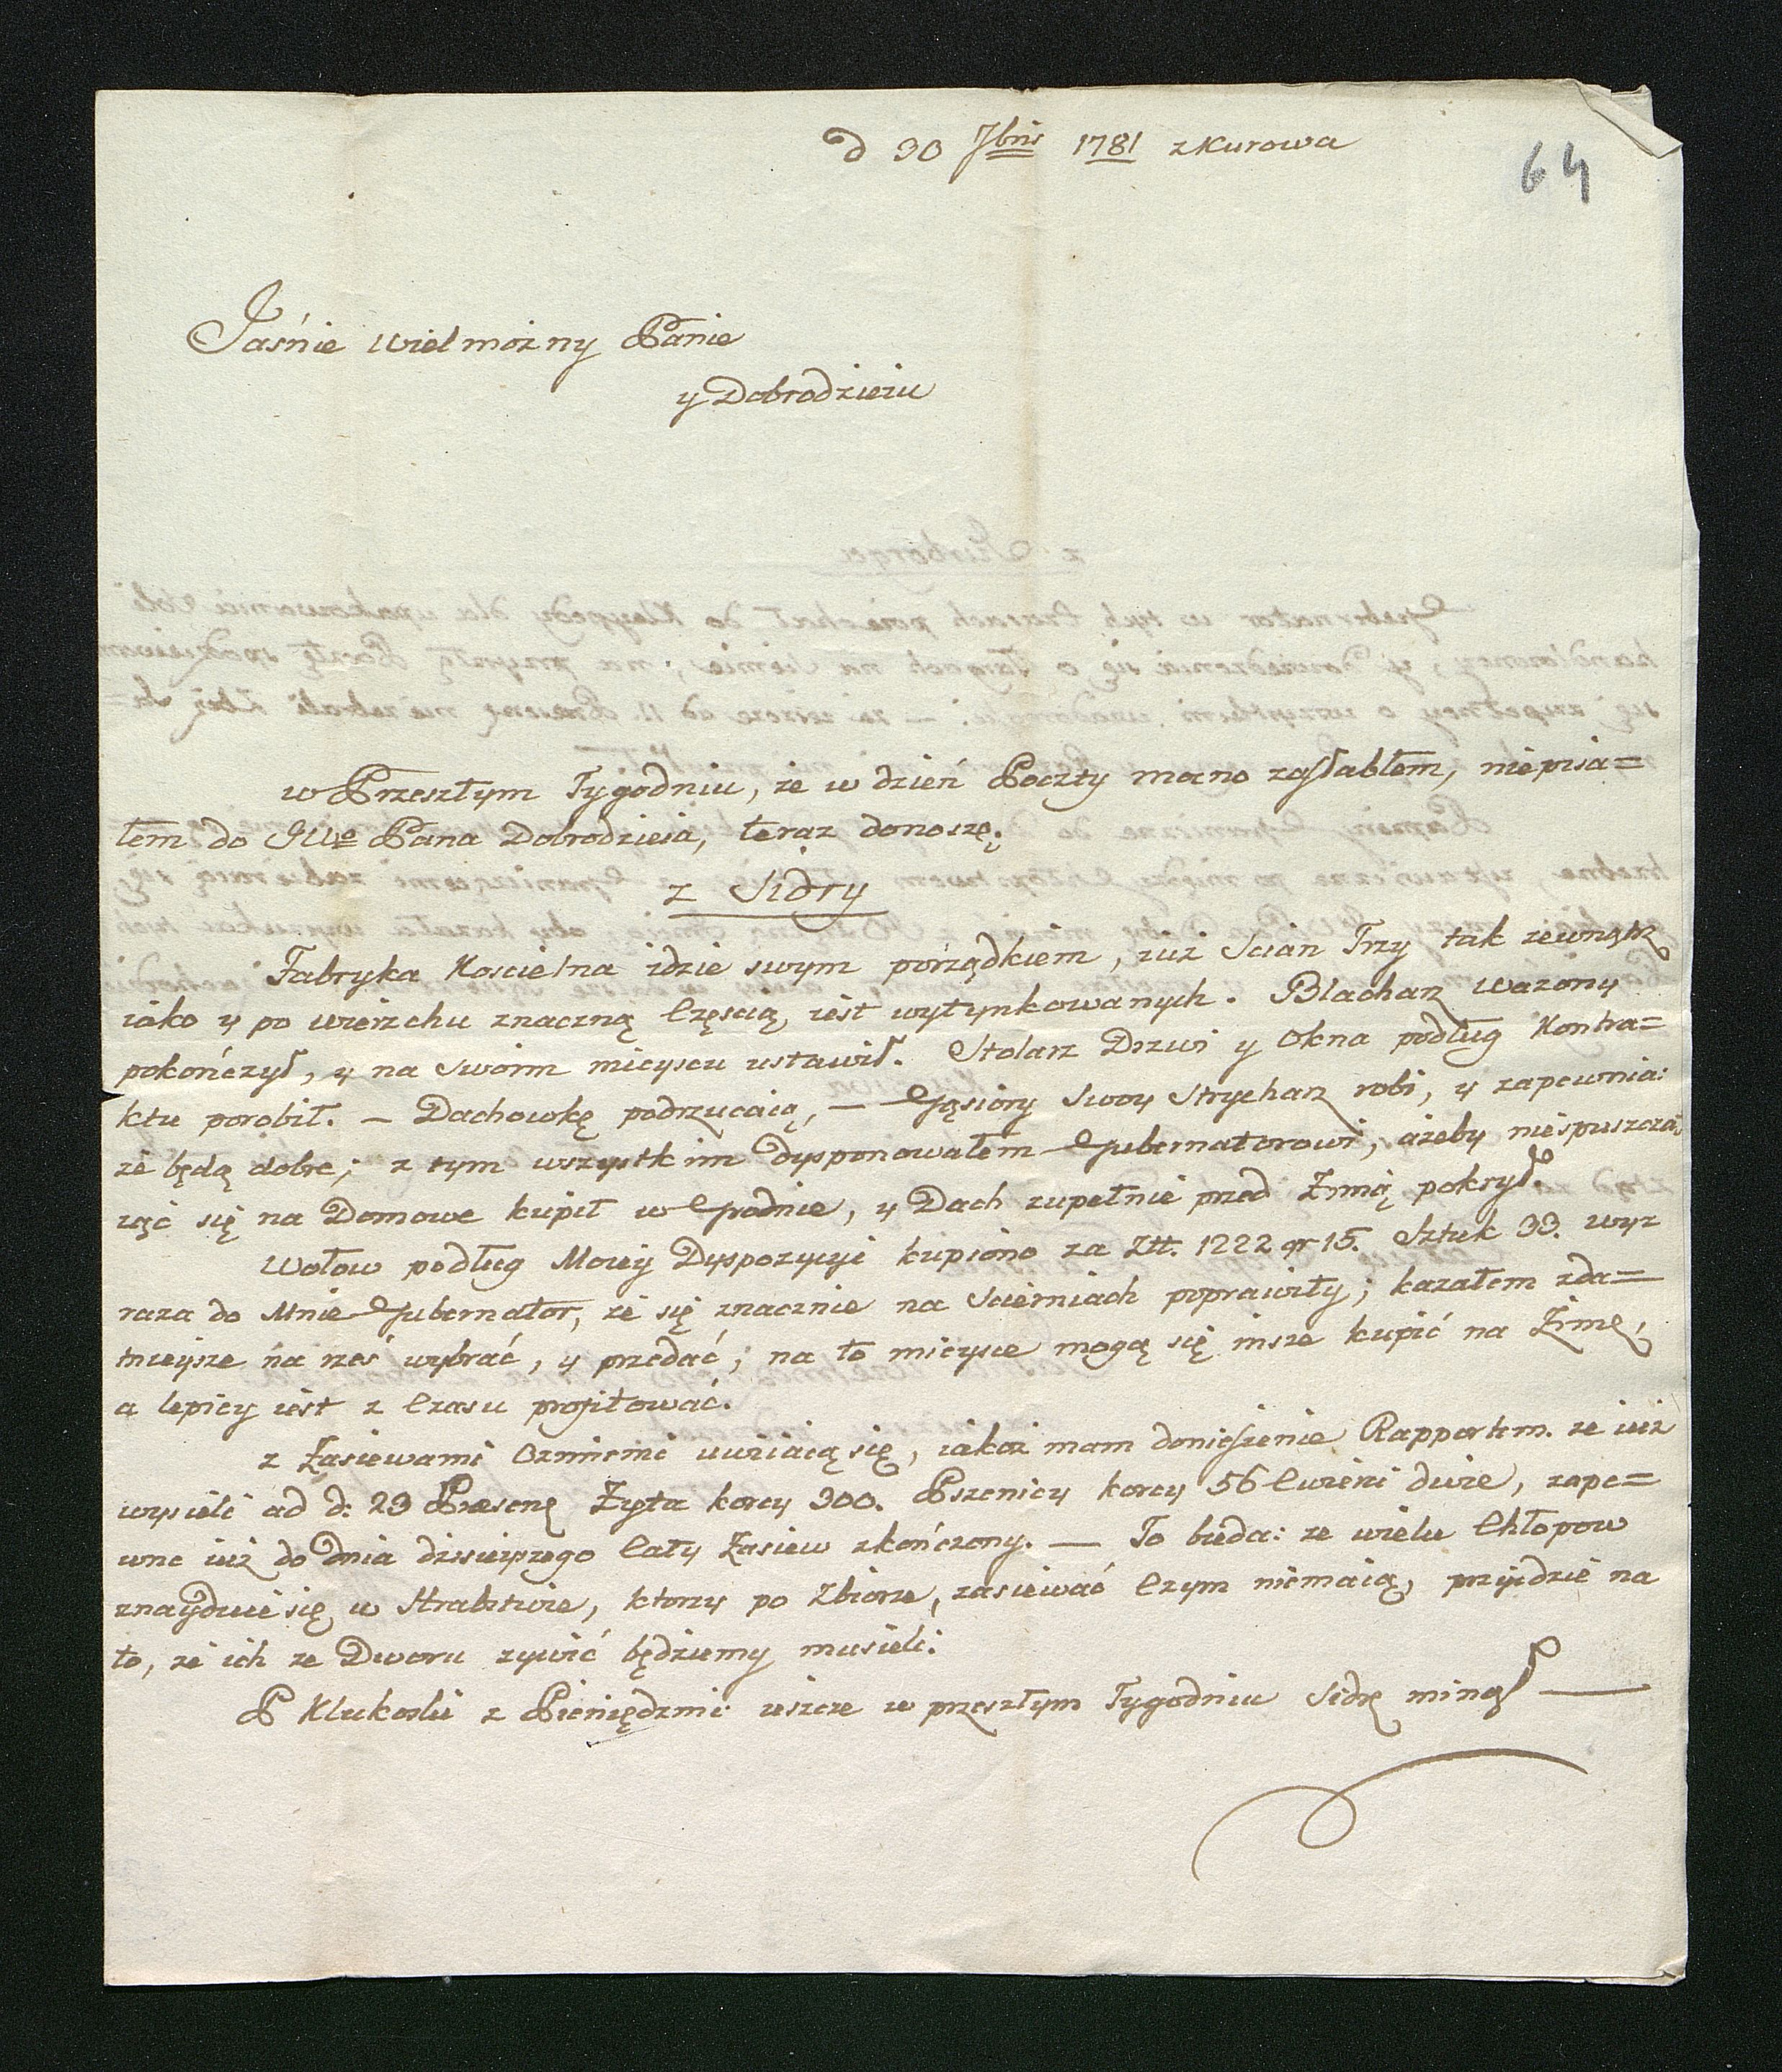 d 30 7bris 1781 z Kurowa
64
Jaśnie Wielmożny Panie
y Dobrodzieiu
w Przeszłym Tygodniu, że w dzień Poczty mocno zasłabłem, niepisa=
łem do JWo Pana Dobrodzieia, teraz donoszę.
z Sidry
Fabryka Koscielna idzie swym porządkiem, iuż Scian Trzy tak zewnątrz
iako y po wierzchu znaczną Częscią iest wytynkowanych. Blacharz Wazony
pokończył, y na Swoim mieyscu ustawił. Stolarz Drzwi y Okna podług Kontra=
ktu porobił. – Dachowkę podrzucaią, – Gąsiory Swoy Strycharz robi, y zapewnia:
że będą dobre; z tym wszystkim dysponowałem Gubernatorowi, ażeby niespuszcza
iąc się na Domowe kupił w Grodnie, y Dach zupełnie przed Zimą pokrył.
Wołow podług Moiey Dyspozycyi kupiono za Ztt. 1222 gr 15. Sztuk 33. wyr
raza do Mnie Gubernator, że się znacznie na Scierniach poprawiły; kazałem zda=
tnieysze na rześ wybrać, y przedać; na to mieysce mogą się insze kupić na Zimę,
a lepiey iest z Czasu profitować.
z Zasiewami Ozimemi uwiiaią się, iakoż mam doniesienie Rapportem. że iuż
wysieli ad d: 23 Præsenę Zyta korcy 300. Pszenicy korcy 56 Cwierci dwie, zape=
wne iuż do dnia dzisieyszego Cały Zasiew skończony. — To bieda: że wielu Chłopow
znayduie się w Hrabstwie, ktorzy po Zbiorze, zasiewać Czym niemaią, przyidzie na
to, że ich ze Dworu zywić będziemy musieli.
P Klukoski z Pieniędzmi ieszcze w przeszłym Tygodniu Sidrę minął —